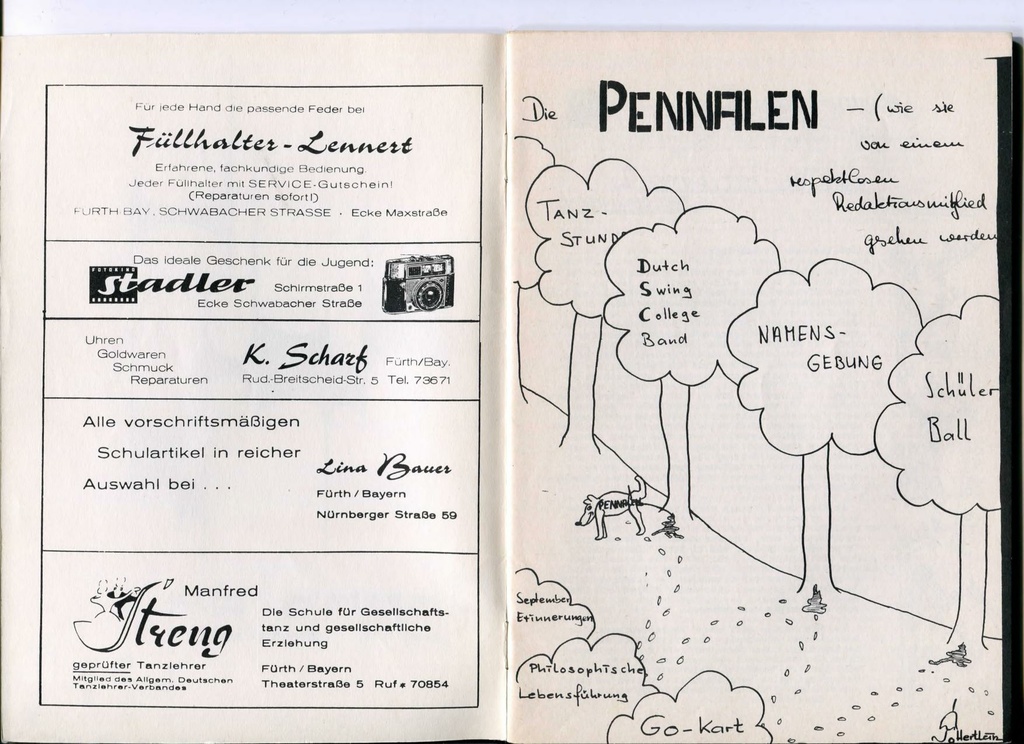 Für jede Hand die passende Feder bei
Füllhalter - Lennert
Erfahrene, fachkundige Bedienung.
Jeder Füllhalter mit SERVICE-Gutschein!
(Reparaturen sofort!)
FÜRTH BAY., SCHWABACHER STRASSE · Ecke Maxstraße
Das ideale Geschenk für die Jugend:
FOTOKING
stadler
Schirmstraße 1
Ecke Schwabacher Straße
Uhren
Goldwaren
Schmuck
Reparaturen
K. Scharf
Fürth/Bay.
Rud.-Breitscheid-Str. 5 Tel. 73671
Alle vorschriftsmäßigen
Schulartikel in reicher
Auswahl bei . . .
Lina Bauer
Fürth / Bayern
Nürnberger Straße 59
Manfred
Streng
geprüfter Tanzlehrer
Mitglied des Allgem. Deutschen
Tanzlehrer-Verbandes
Die Schule für Gesellschafts-
tanz und gesellschaftliche
Erziehung
Fürth / Bayern
Theaterstraße 5 Ruf * 70854
Die PENNALEN – (wie sie
von einem
respektlosen
Redaktionsmitglied
gesehen werden
TANZ-
STUNDE
Dutch
Swing
College
Band
NAMENS-
GEBUNG
Schüler
Ball
PENNALEN
September
Erinnerungen
Philosophische
Lebensführung
Go-Kart
Hertlein